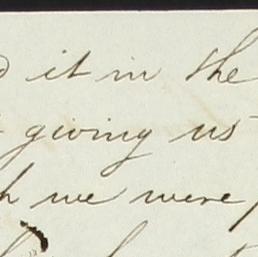 it in the
giving us
we were